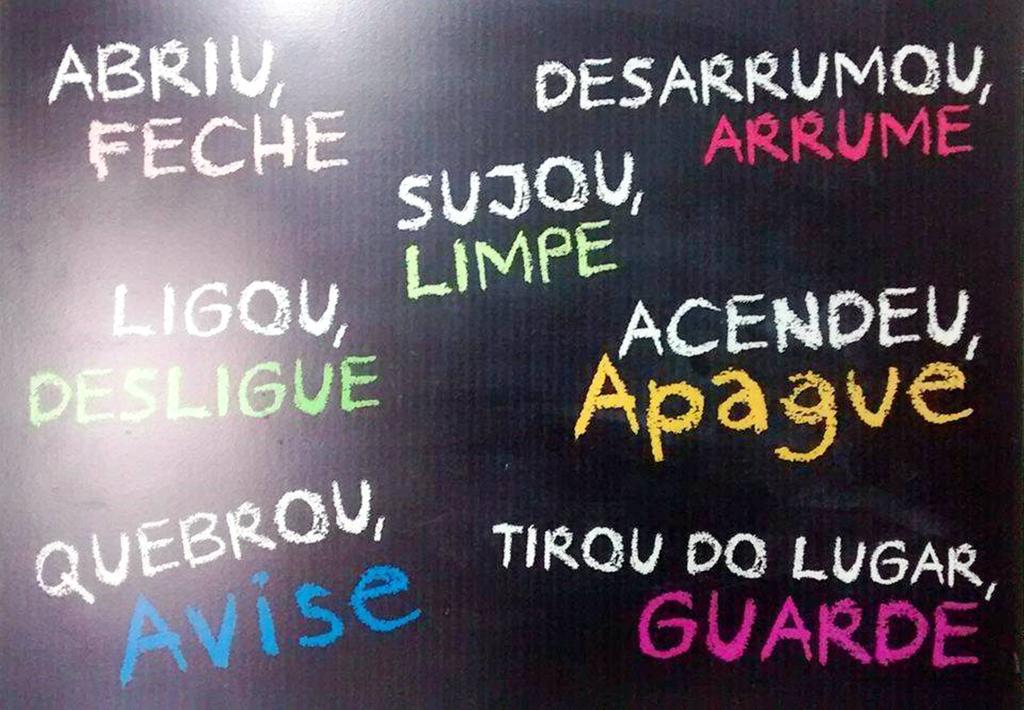 ABRIU,
FECHE
DESARRUMOU,
ARRUME
SUJOU,
LIMPE
LIGOU,
DESLIGUE
ACENDEU,
Apague
QUEBROU,
Avise
TIROU DO LUGAR,
GUARDE